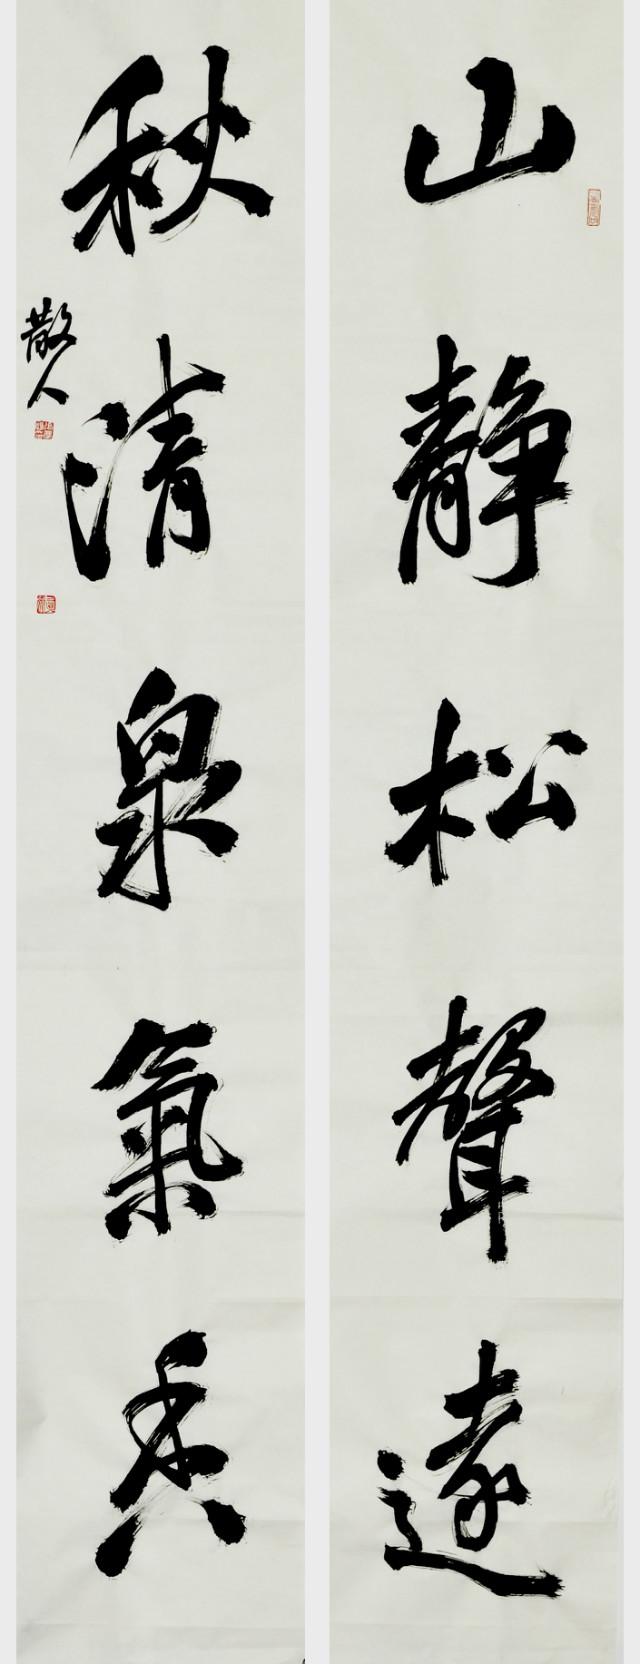 山靜松聲遠
秋清泉氣香
散人